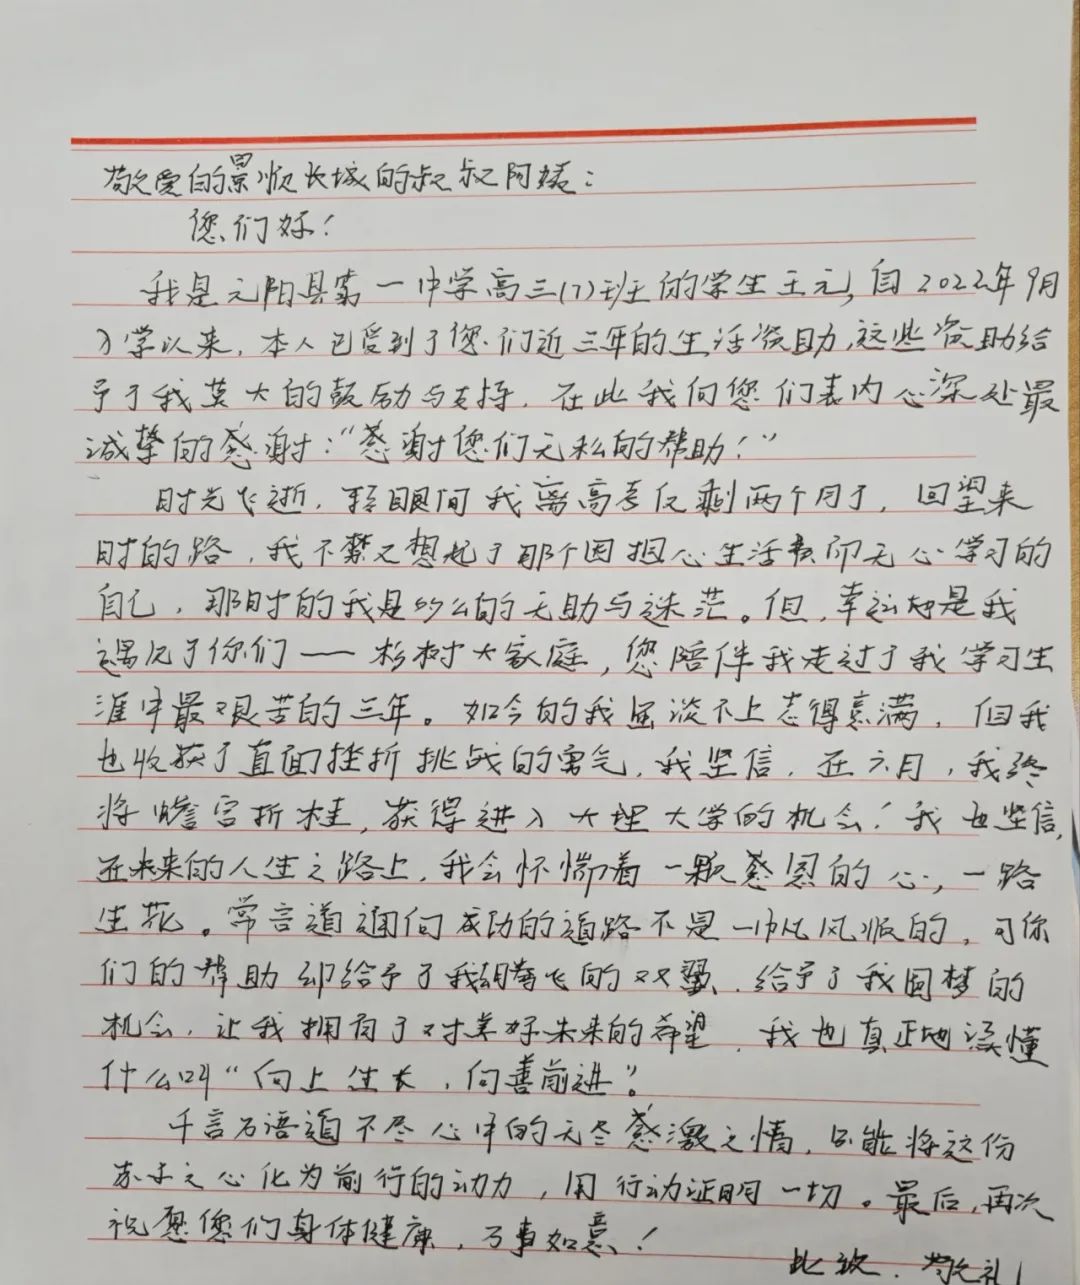 敬爱的景顺长城的叔叔阿姨：
您们好！
我是元阳县第一中学高三(7)班的学生王元，自2022年9月
入学以来，本人已受到了您们近三年的生活资助，这些资助给
予了我莫大的鼓励与支持，在此我向您们表内心深处最
诚挚的感谢：“感谢您们无私的帮助！”
时光飞逝，转眼间我离高考仅剩两个月了，回望来
时的路，我不禁又想起了那个因担心生活费而无心学习的
自己，那时的我是多么的无助与迷茫。但，幸运地是我
遇见了你们——杉树大家庭，您陪伴我走过了我学习生
涯中最艰苦的三年。如今的我虽谈不上志得意满，但我
也收获了直面挫折挑战的勇气，我坚信，在六月，我终
将蟾宫折桂，获得进入大理大学的机会！我也坚信，
在未来的人生之路上，我会怀惴着一颗感恩的心，一路
生花。常言道通向成功的道路不是一帆风顺的，可你
们的帮助却给予了我翱腾飞的双翼，给予了我圆梦的
机会，让我拥有了对美好未来的希望，我也真正地读懂
什么叫“向上生长，向善前进”。
千言万语道不尽心中的无尽感激之情，只能将这份
赤子之心化为前行的动力，用行动证明一切。最后，再次
祝愿您们身体健康，万事如意！
此致，敬礼！